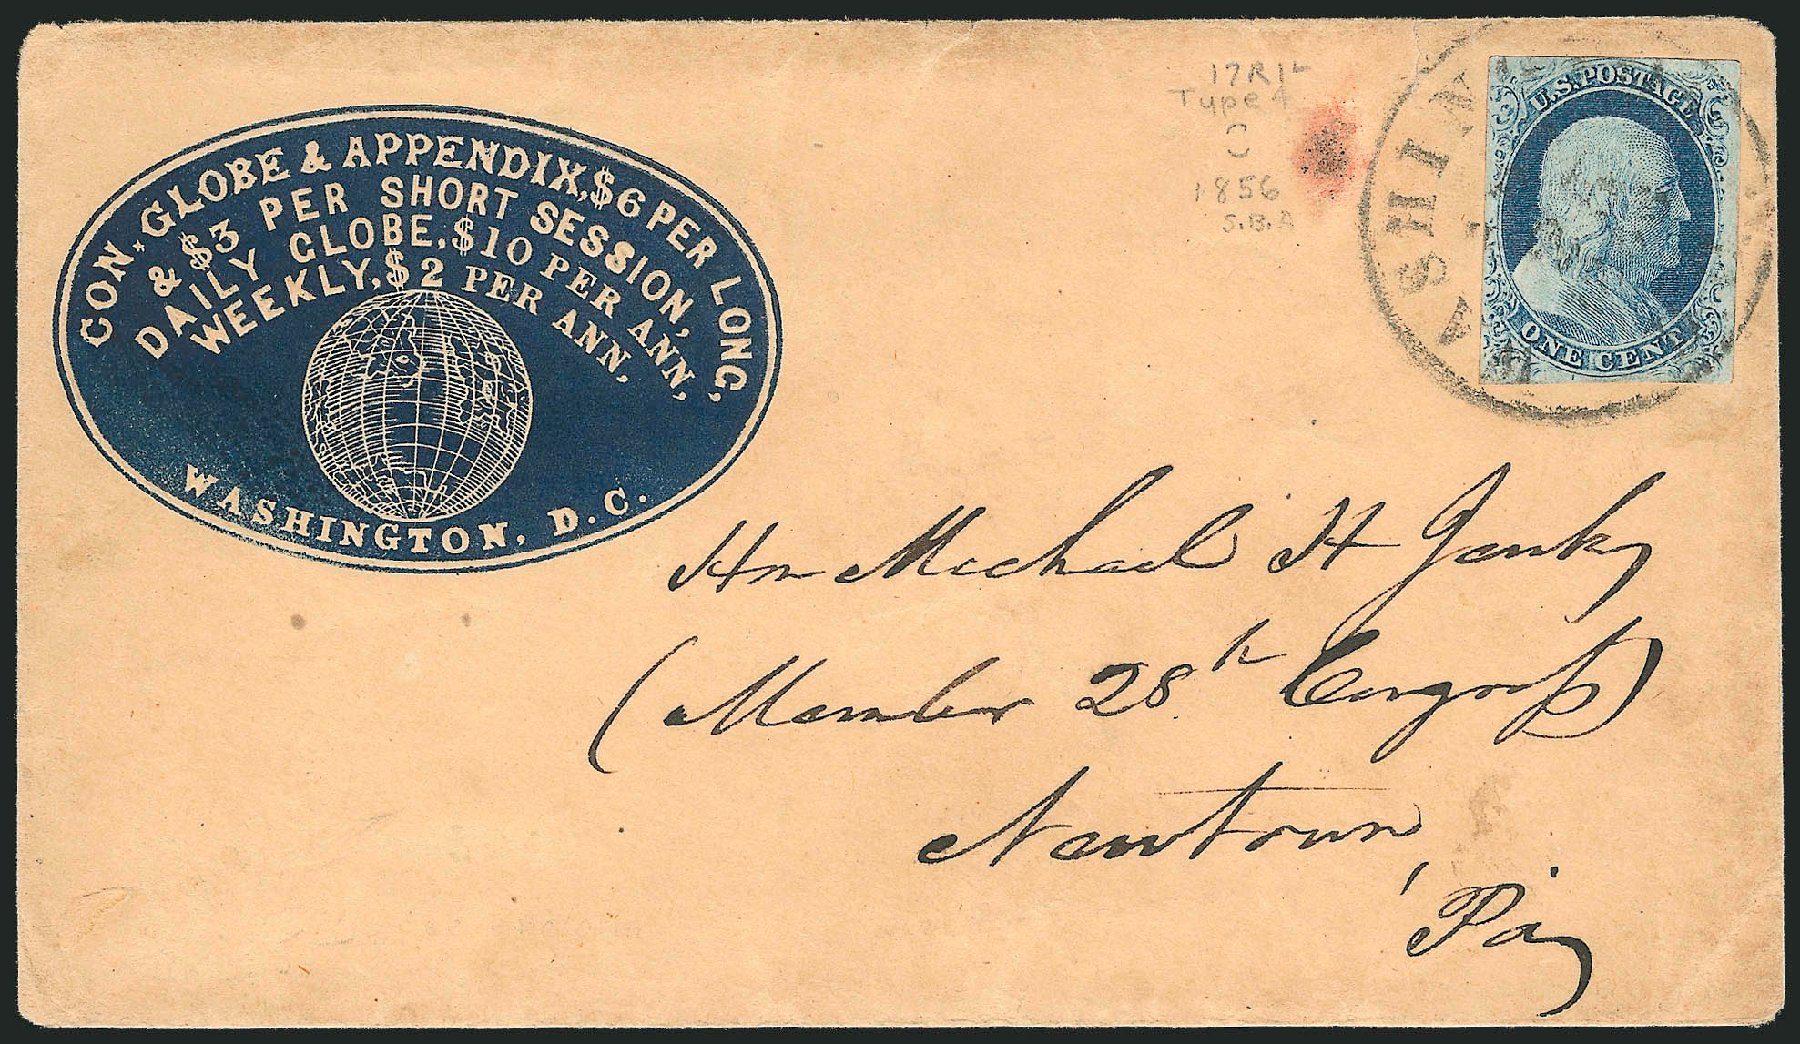 CON. GLOBE & APPENDIX, $6 PER LONG,
& $3 PER SHORT SESSION,
DAILY GLOBE, $10 PER ANN,
WEEKLY, $2 PER ANN,
WASHINGTON, D.C.
17R1L
Type 4
1856
S.B.A
WASHIN
U.S. POSTAGE
ONE CENT
Hn Michael H Jenks
(Member 28th Congress)
Newtown,
Pa